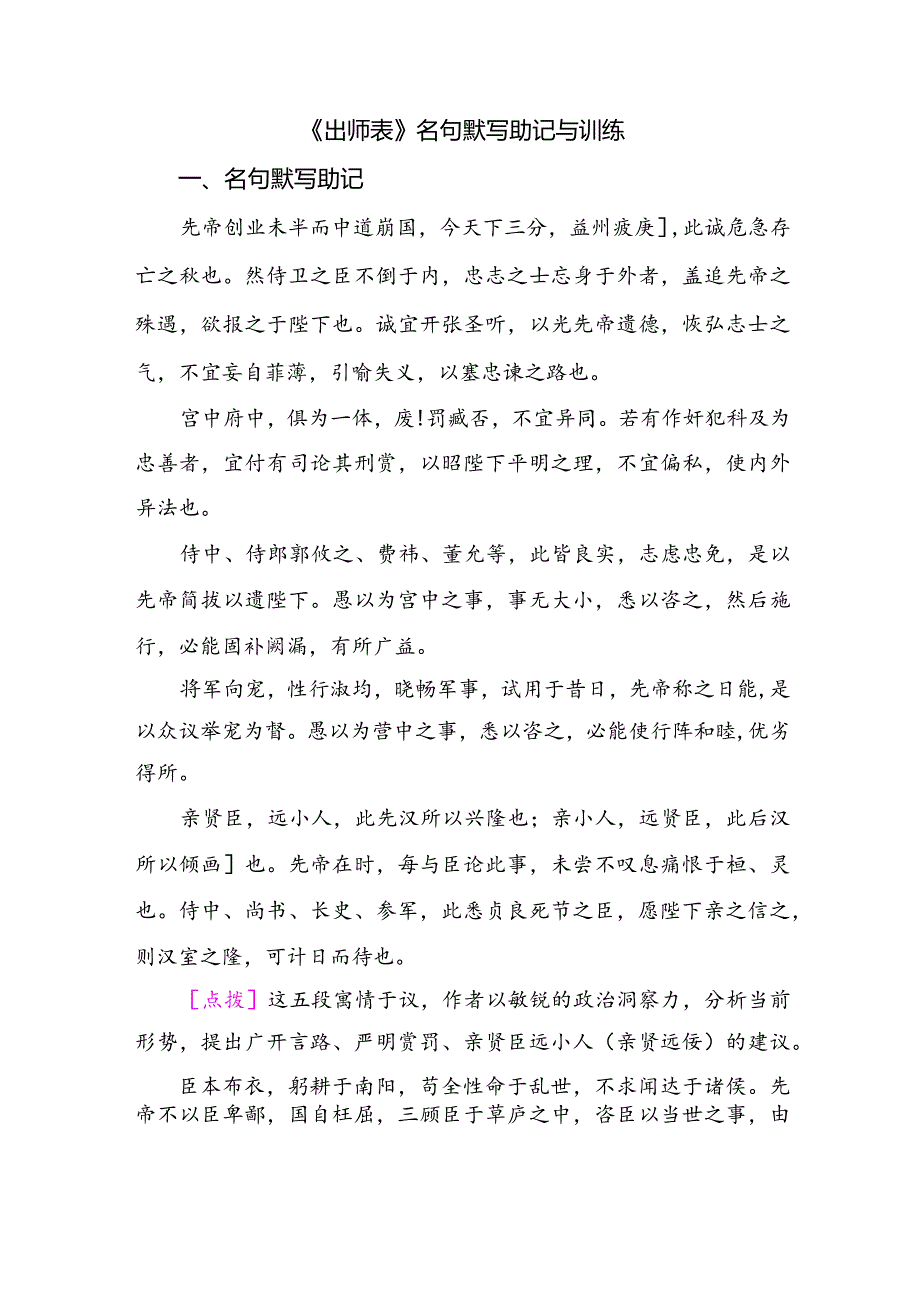 《出师表》名句默写助记与训练
一、名句默写助记
先帝创业未半而中道崩国，今天下三分，益州疲庚］,此诚危急存
亡之秋也。然侍卫之臣不倒于内，忠志之士忘身于外者，盖追先帝之
殊遇，欲报之于陛下也。诚宜开张圣听，以光先帝遗德，恢弘志士之
气，不宜妄自菲薄，引喻失义，以塞忠谏之路也。
宫中府中，俱为一体，废!罚臧否，不宜异同。若有作奸犯科及为
忠善者，宜付有司论其刑赏，以昭陛下平明之理，不宜偏私，使内外
异法也。
侍中、侍郎郭攸之、费祎、董允等，此皆良实，志虑忠免，是以
先帝简拔以遗陛下。愚以为宫中之事，事无大小，悉以咨之，然后施
行，必能固补阙漏，有所广益。
将军向宠，性行淑均，晓畅军事，试用于昔日，先帝称之日能,是
以众议举宠为督。愚以为营中之事，悉以咨之，必能使行阵和睦,优劣
得所。
亲贤臣，远小人，此先汉所以兴隆也；亲小人，远贤臣，此后汉
所以倾画］也。先帝在时，每与臣论此事，未尝不叹息痛恨于桓、灵
也。侍中、尚书、长史、参军，此悉贞良死节之臣，愿陛下亲之信之，
则汉室之隆，可计日而待也。
［点拨］这五段寓情于议，作者以敏锐的政治洞察力，分析当前
形势，提出广开言路、严明赏罚、亲贤臣远小人（亲贤远佞）的建议。
臣本布衣，躬耕于南阳，苟全性命于乱世，不求闻达于诸侯。先
帝不以臣卑鄙，国自枉屈，三顾臣于草庐之中，咨臣以当世之事，由